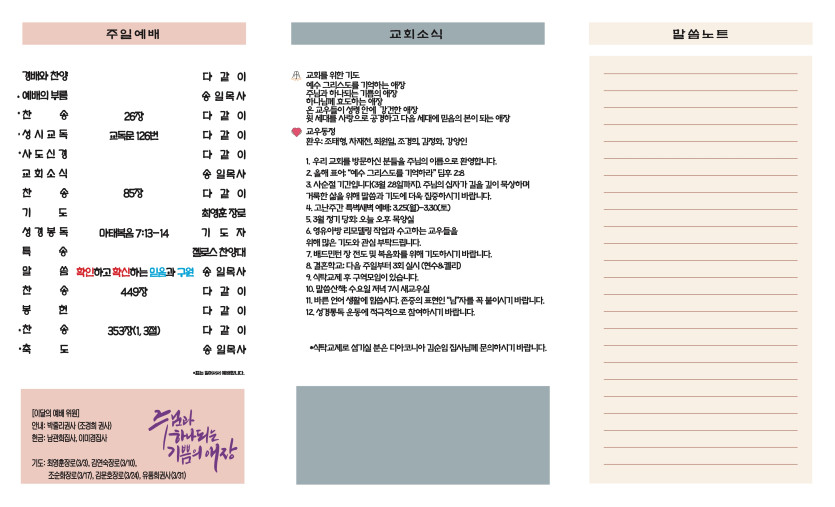 주일예배
경배와 찬양 다 같 이
· 예배의 부름 송 일 목 사
· 찬 송 26장 다 같 이
· 성 시 교 독 교독문 126번 다 같 이
· 사 도 신 경 다 같 이
교 회 소 식 송 일 목 사
찬 송 85장 다 같 이
기 도 최영훈 장로
성 경 봉 독 마태복음 7:13-14 기 도 자
특 송 겔로스 찬양대
말 씀 확인하고 확신하는 믿음과 구원 송 일 목 사
찬 송 449장 다 같 이
봉 헌 다 같 이
· 찬 송 353장(1, 3절) 다 같 이
· 축 도 송 일 목 사
[이달의 예배 위원]
안내: 박줄리권사 (조경희 권사)
헌금: 남관희집사, 이미경집사
기도: 최영훈장로(3/3), 김연숙장로(3/10),
조순화장로(3/17), 김문호장로(3/24), 유풍희권사(3/31)
주님과
하나되는
기쁨의 애장
교회소식
교회를 위한 기도
예수 그리스도를 기억하는 애장
주님과 하나되는 기쁨의 애장
하나님께 효도하는 애장
온 교우들이 성령 안에 강건한 애장
윗 세대를 사랑으로 공경하고 다음 세대에 믿음의 본이 되는 애장
교우동정
환우: 조태형, 차재천, 최원일, 조경희, 김정화, 강양인
1. 우리 교회를 방문하신 분들을 주님의 이름으로 환영합니다.
2. 올해 표어: "예수 그리스도를 기억하라" 딤후 2:8
3. 사순절 기간입니다(3월 28일까지). 주님의 십자가 길을 깊이 묵상하며
거룩한 삶을 위해 말씀과 기도에 더욱 집중하시기 바랍니다.
4. 고난주간 특별새벽 예배: 3.25(월)-3.30(토)
5. 3월 정기 당회: 오늘 오후 목양실
6. 영유아방 리모델링 작업과 수고하는 교우들을
위해 많은 기도와 관심 부탁드립니다.
7. 배드민턴 장 전도 및 복음화를 위해 기도하시기 바랍니다.
8. 결혼학교: 다음 주일부터 3회 실시 (현수&켈리)
9. 식탁교제 후 구역모임이 있습니다.
10. 말씀산책: 수요일 저녁 7시 새교우실
11. 바른 언어 생활에 힘씁시다. 존중의 표현인 "님"자를 꼭 붙이시기 바랍니다.
12. 성경통독 운동에 적극적으로 참여하시기 바랍니다.
*식탁교제로 섬기실 분은 디아코니아 김순임 집사님께 문의하시기 바랍니다.
말씀노트